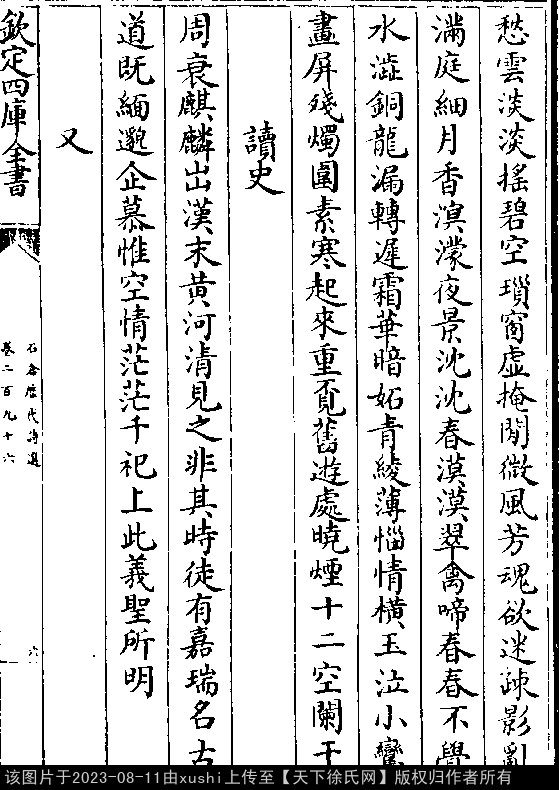 愁雲淡淡摇碧空瑣窗虚掩閒微風芳魂欲迷踈影亂
滿庭細月香溟濛夜景沈沈春漠漠翠禽啼春春不覺
水澁銅龍漏轉遲霜華暗妬青綾薄惱情横玉泣小鸞
畫屏殘燭圍素寒起來重覔舊遊處曉煙十二空闌干
讀史
周衰麒麟出漢末黄河清見之非其時徒有嘉瑞名古
道既緬邈企慕惟空情茫茫千祀上此義聖所明
又
欽定四庫全書
石倉歷代詩選
卷二百九十六
六
该图片于2023-08-11由xushi上传至【天下徐氏网】版权归作者所有